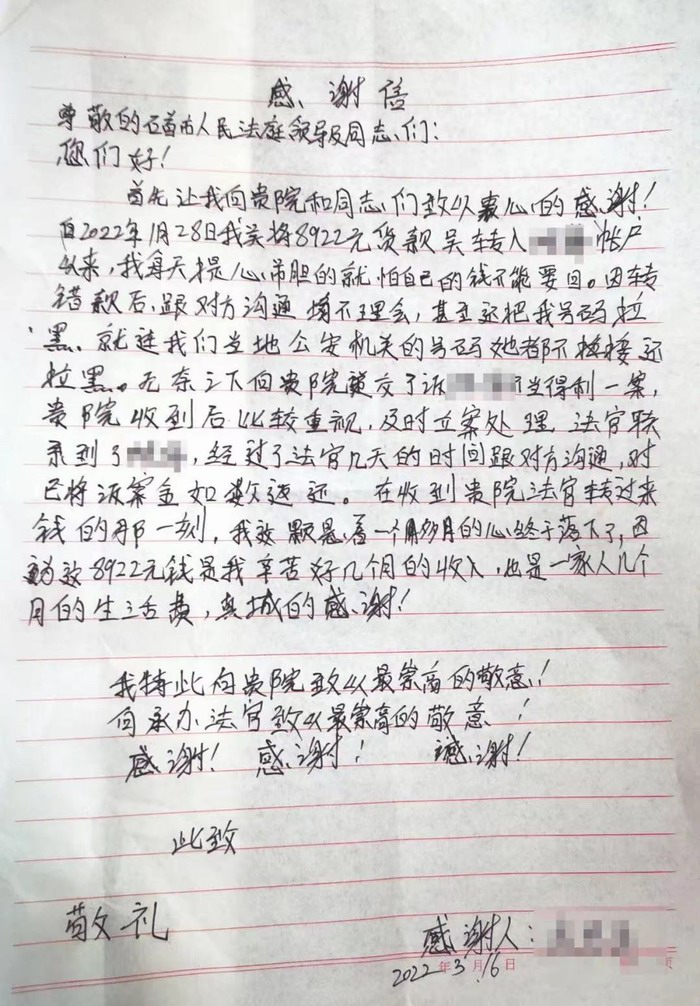 感谢信
尊敬的石首市人民法庭领导及同志们：
您们好！
首先让我向贵院和同志们致以衷心的感谢！
自2022年1月28日我关将8922元货款吴转入 帐户
以来，我每天提心吊胆的就怕自己的钱不能要回。因转
错款后，跟对方沟通 不理会，甚至还把我号码拉
黑、就连我们当地公安机关的号码她都不接还
拉黑。无奈之下向贵院递交了诉 当得利一案，
贵院收到后比较重视，及时立案处理 法官联
系到了 ，经过了法官几天的时间跟对方沟通，对
已将该案金如数返还。在收到贵院法官转过来
钱的那一刻，我这颗悬着一个多月的心终于落下了，因
为这8922元钱是我辛苦好几个月的收入，也是一家人几个
月的生活费，真城的感谢！
我特此向贵院致以最崇高的敬意！
向承办法官致以最崇高的敬意！
感谢！ 感谢！ 感谢！
此致
敬礼
感谢人：
2022年3月16日
页